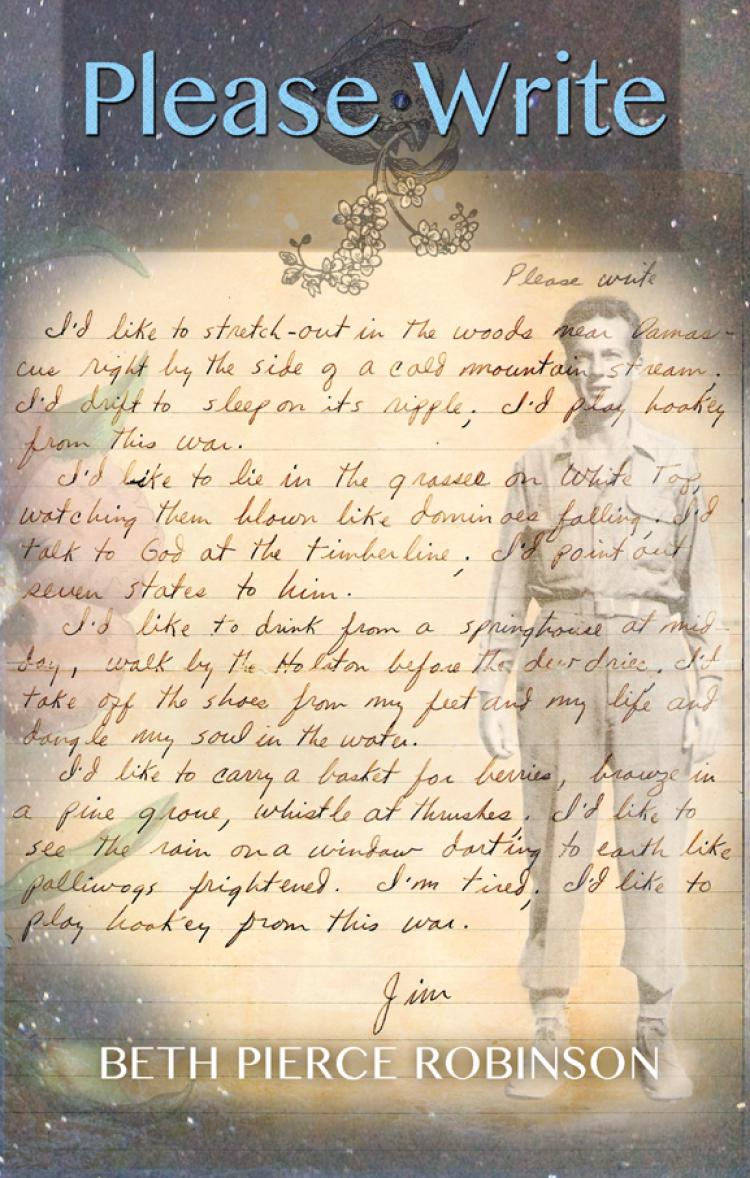 Please Write
Please write
I'd like to stretch-out in the woods near Damas-
cus right by the side of a cold mountain stream.
I'd drift to sleep on its ripple; I'd play hookey
from this war.
I'd like to lie in the grasses on White Top,
watching them blown like dominoes falling. I'd
talk to God at the timberline; I'd point out
seven states to him.
I'd like to drink from a springhouse at mid-
day, walk by the Holston before the dew dries. I'd
take off the shoes from my feet and my life and
dangle my soul in the water.
I'd like to carry a basket for berries, browze in
a pine grove, whistle at thrushes. I'd like to
see the rain on a window darting to earth like
polliwogs frightened. I'm tired; I'd like to
play hookey from this war.
Jim
BETH PIERCE ROBINSON